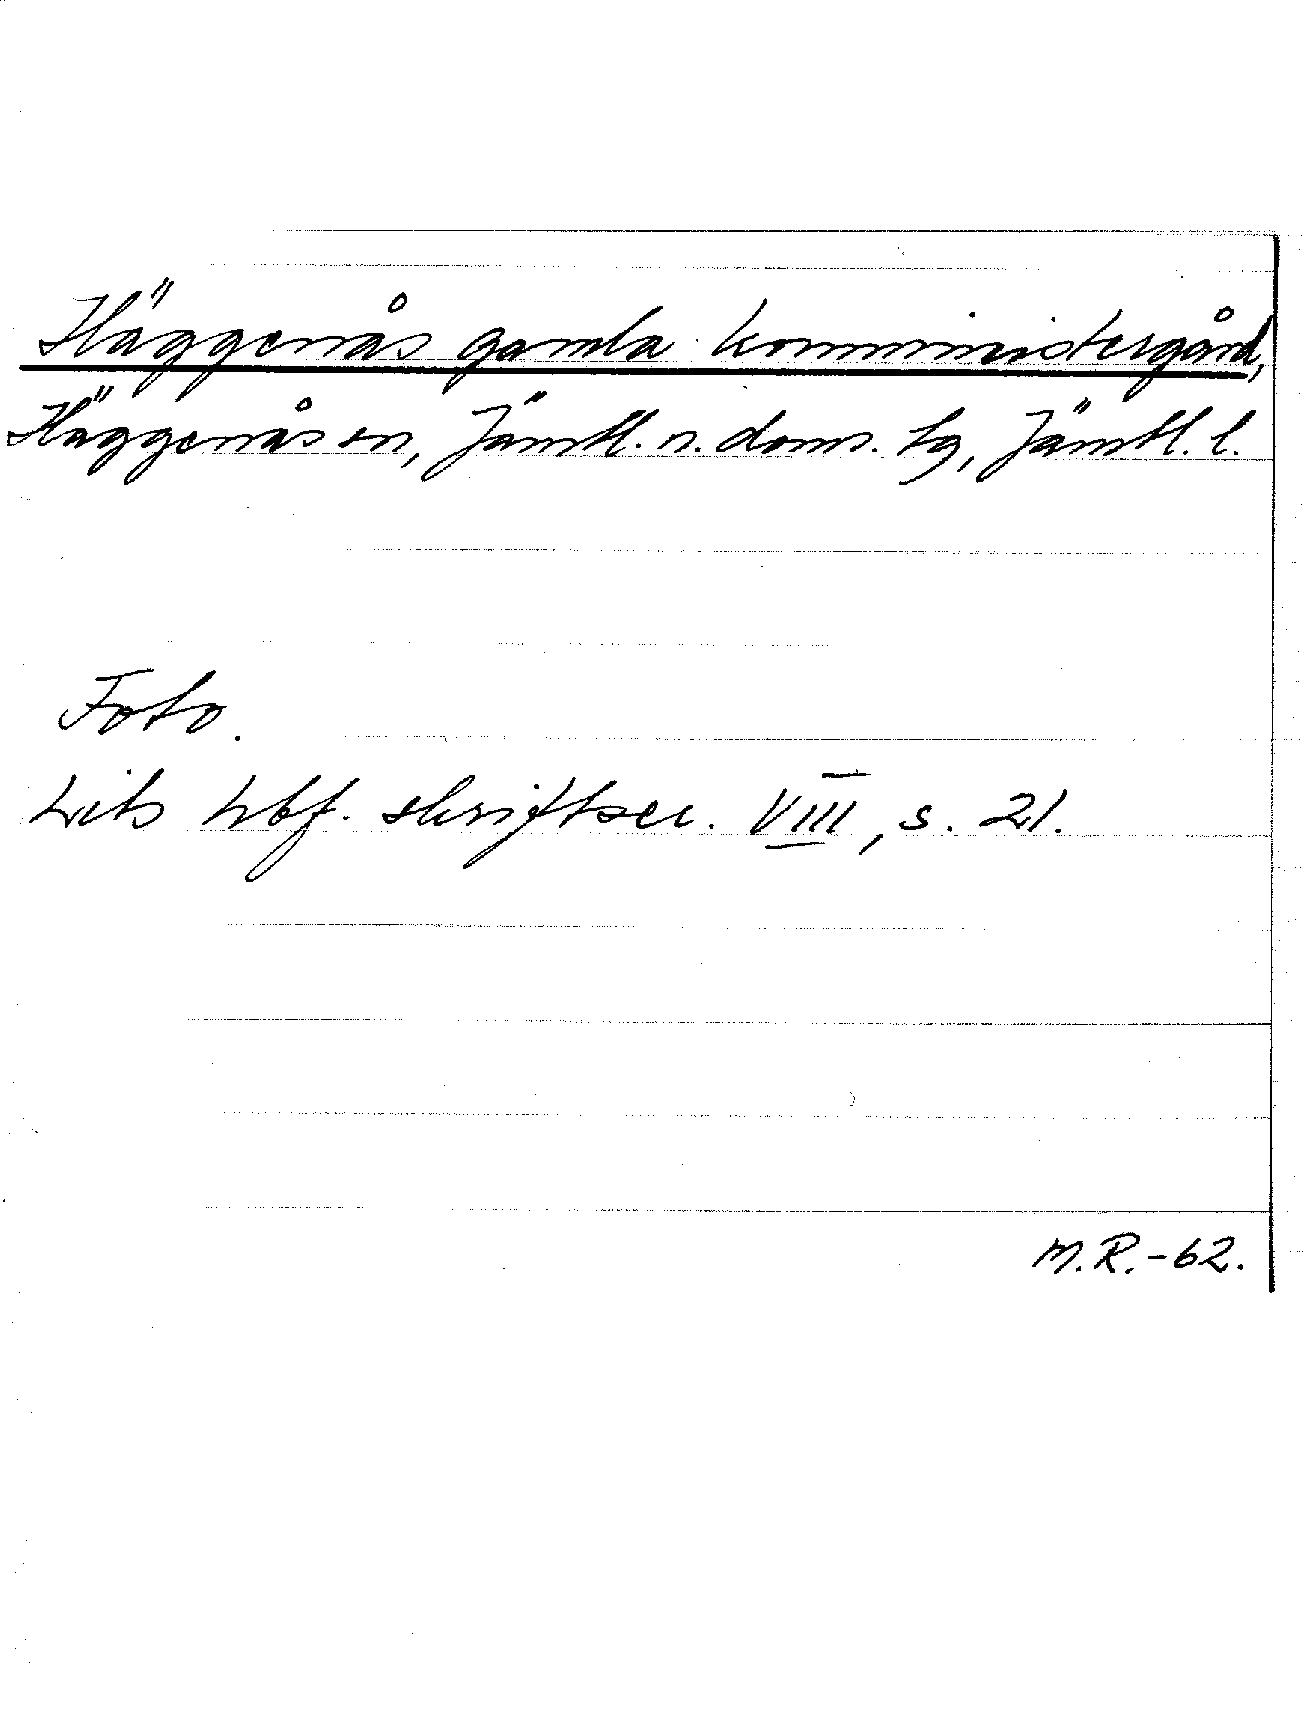 Häggenås gamla komministergård,
Häggenås sn, Jämtl. n. doms. tg, Jämtl. l.
Foto.
Lits hbf. skriftser. VIII, s. 21.
M.R.-62.